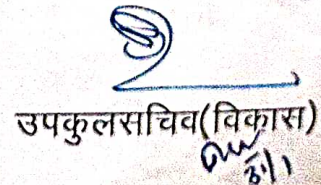 उपकुलसचिव(विकास)